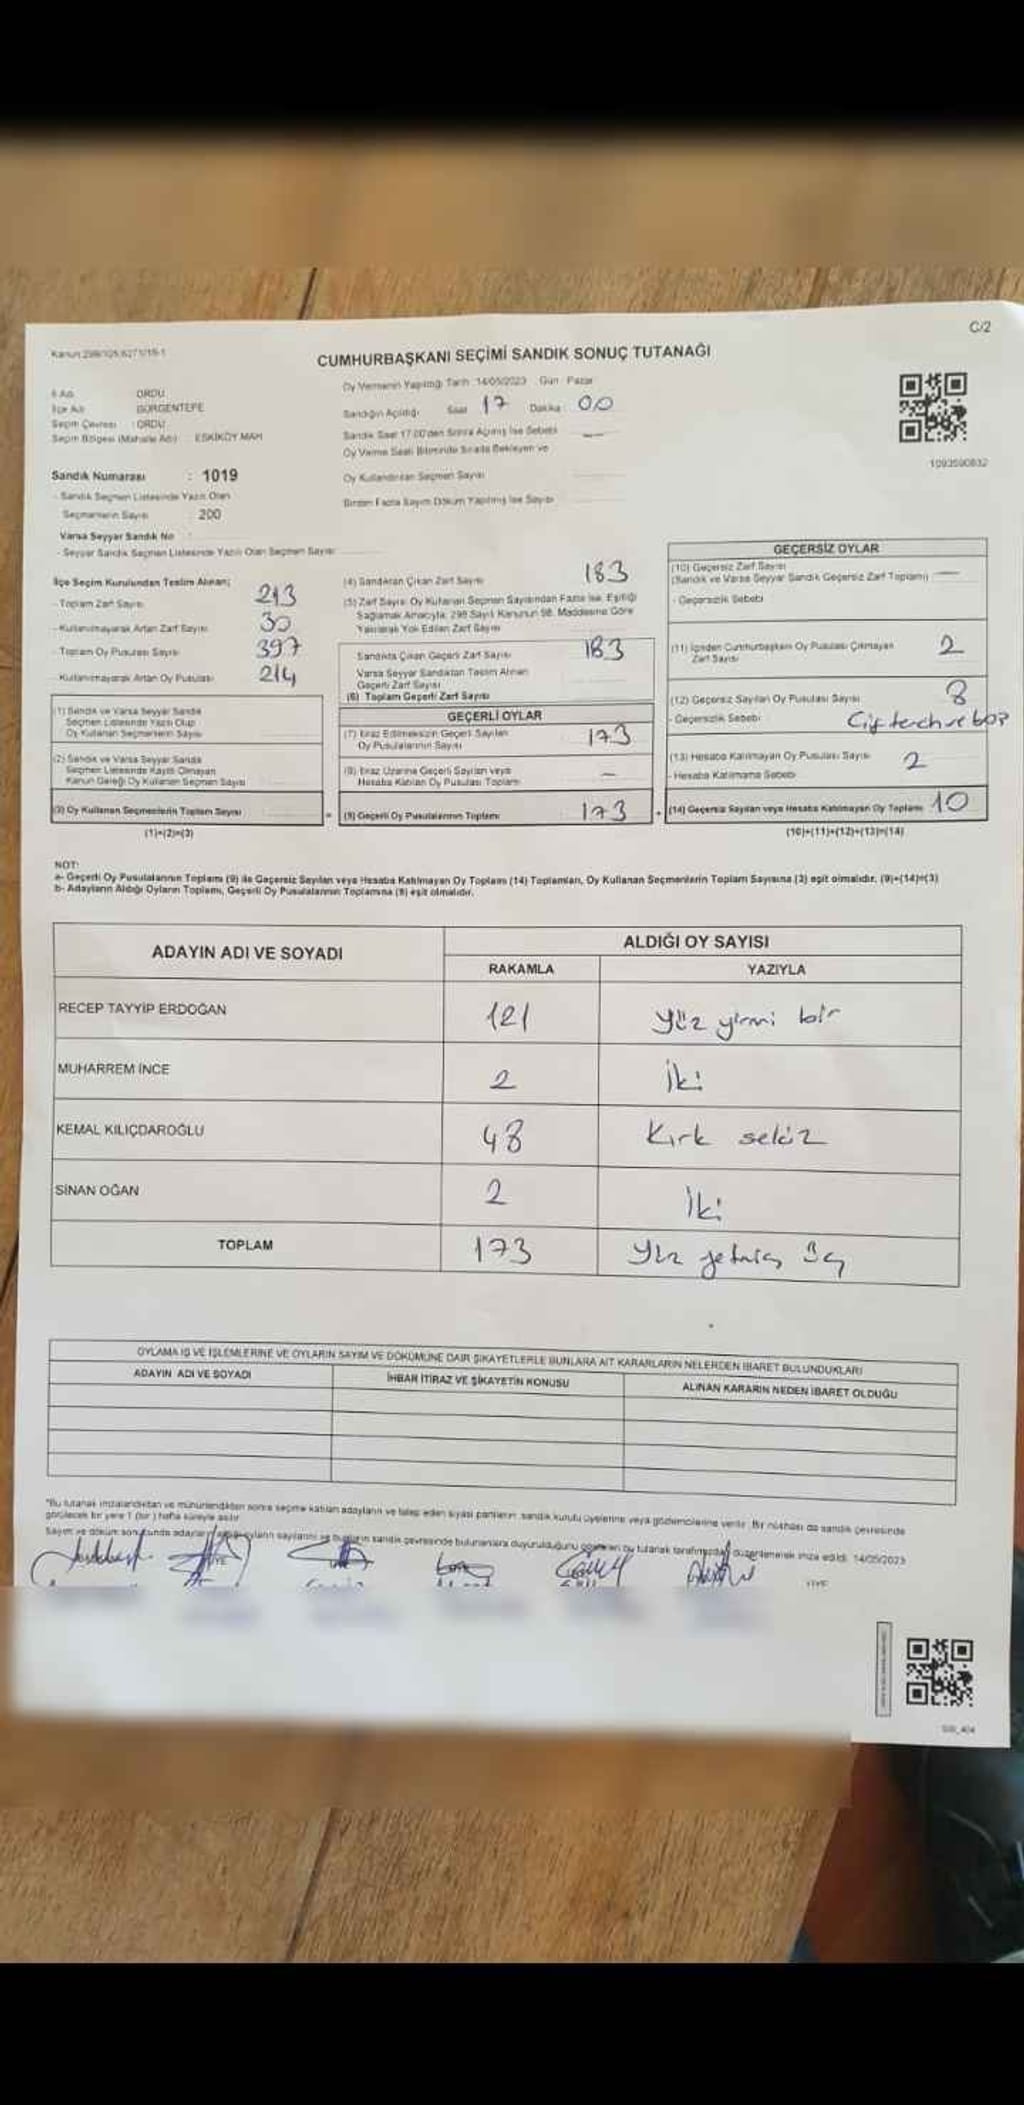 C/2
CUMHURBAŞKANI SEÇİMİ SANDIK SONUÇ TUTANAĞI
İl Adı : ORDU
İlçe Adı : GÜRGENTEPE
Seçim Çevresi : ORDU
Seçim Bölgesi (Mahalle Adı) : ESKİKÖY MAH
Sandık Numarası : 1019
- Sandık Seçmen Listesinde Yazılı Olan
Seçmenlerin Sayısı : 200
Varsa Seyyar Sandık No
- Seyyar Sandık Seçmen Listesinde Yazılı Olan Seçmen Sayısı
Oy Vermenin Yapıldığı Tarih 14/05/2023 Gün Pazar
Sandığın Açıldığı Saat 17 Dakika 00
Sandık Saat 17.00'den Sonra Açılmış İse Sebebi —
Oy Verme Saati Bitiminde Sırada Bekleyen ve
Oy Kullandırılan Seçmen Sayısı
Birden Fazla Sayım Döküm Yapılmış İse Sayısı
1093590832
İlçe Seçim Kurulundan Teslim Alınan;
- Toplam Zarf Sayısı 213
- Kullanılmayarak Artan Zarf Sayısı 30
- Toplam Oy Pusulası Sayısı 397
- Kullanılmayarak Artan Oy Pusulası 214
(1) Sandık ve Varsa Seyyar Sandık
Seçmen Listesinde Yazılı Olup
Oy Kullanan Seçmenlerin Sayısı
(2) Sandık ve Varsa Seyyar Sandık
Seçmen Listesinde Kayıtlı Olmayan
Kanun Gereği Oy Kullanan Seçmen Sayısı
(3) Oy Kullanan Seçmenlerin Toplam Sayısı
(1)+(2)=(3)
(4) Sandıktan Çıkan Zarf Sayısı 183
(5) Zarf Sayısı Oy Kullanan Seçmen Sayısından Fazla İse, Eşitliği
Sağlamak Amacıyla, 298 Sayılı Kanunun 98. Maddesine Göre
Yakılarak Yok Edilen Zarf Sayısı
Sandıkta Çıkan Geçerli Zarf Sayısı 183
Varsa Seyyar Sandıktan Teslim Alınan
Geçerli Zarf Sayısı
(6) Toplam Geçerli Zarf Sayısı
GEÇERLİ OYLAR
(7) İtiraz Edilmeksizin Geçerli Sayılan
Oy Pusulalarının Sayısı 173
(8) İtiraz Üzerine Geçerli Sayılan veya
Hesaba Katılan Oy Pusulası Toplamı —
(9) Geçerli Oy Pusulalarının Toplamı 173
GEÇERSİZ OYLAR
(10) Geçersiz Zarf Sayısı
(Sandık ve Varsa Seyyar Sandık Geçersiz Zarf Toplamı) —
- Geçersizlik Sebebi
(11) İçinden Cumhurbaşkanı Oy Pusulası Çıkmayan
Zarf Sayısı 2
(12) Geçersiz Sayılan Oy Pusulası Sayısı 8
- Geçersizlik Sebebi
(13) Hesaba Katılmayan Oy Pusulası Sayısı 2
- Hesaba Katılmama Sebebi
(14) Geçersiz Sayılan veya Hesaba Katılmayan Oy Toplamı 10
(10)+(11)+(12)+(13)=(14)
NOT:
a- Geçerli Oy Pusulalarının Toplamı (9) ile Geçersiz Sayılan veya Hesaba Katılmayan Oy Toplamı (14) Toplamları, Oy Kullanan Seçmenlerin Toplam Sayısına (3) eşit olmalıdır. (9)+(14)=(3)
b- Adayların Aldığı Oyların Toplamı, Geçerli Oy Pusulalarının Toplamına (9) eşit olmalıdır.
ADAYIN ADI VE SOYADI
ALDIĞI OY SAYISI
RAKAMLA YAZIYLA
RECEP TAYYİP ERDOĞAN 121 yüz yirmi bir
MUHARREM İNCE 2 İki
KEMAL KILIÇDAROĞLU 48 Kırk sekiz
SİNAN OĞAN 2 İki
TOPLAM 173 yüz yetmiş üç
OYLAMA İŞ VE İŞLEMLERİNE VE OYLARIN SAYIM VE DÖKÜMÜNE DAİR ŞİKAYETLERLE BUNLARA AİT KARARLARIN NELERDEN İBARET BULUNDUKLARI
ADAYIN ADI VE SOYADI
İHBAR İTİRAZ VE ŞİKAYETİN KONUSU
ALINAN KARARIN NEDEN İBARET OLDUĞU
*Bu tutanak imzalandıktan ve mühürlendikten sonra seçime katılan adayların ve talep eden siyasi partilerin, sandık kurulu üyelerine veya gözlemcilerine verilir. Bir nüshası da sandık çevresinde
görülecek bir yere 1 (bir) hafta süreyle asılır.